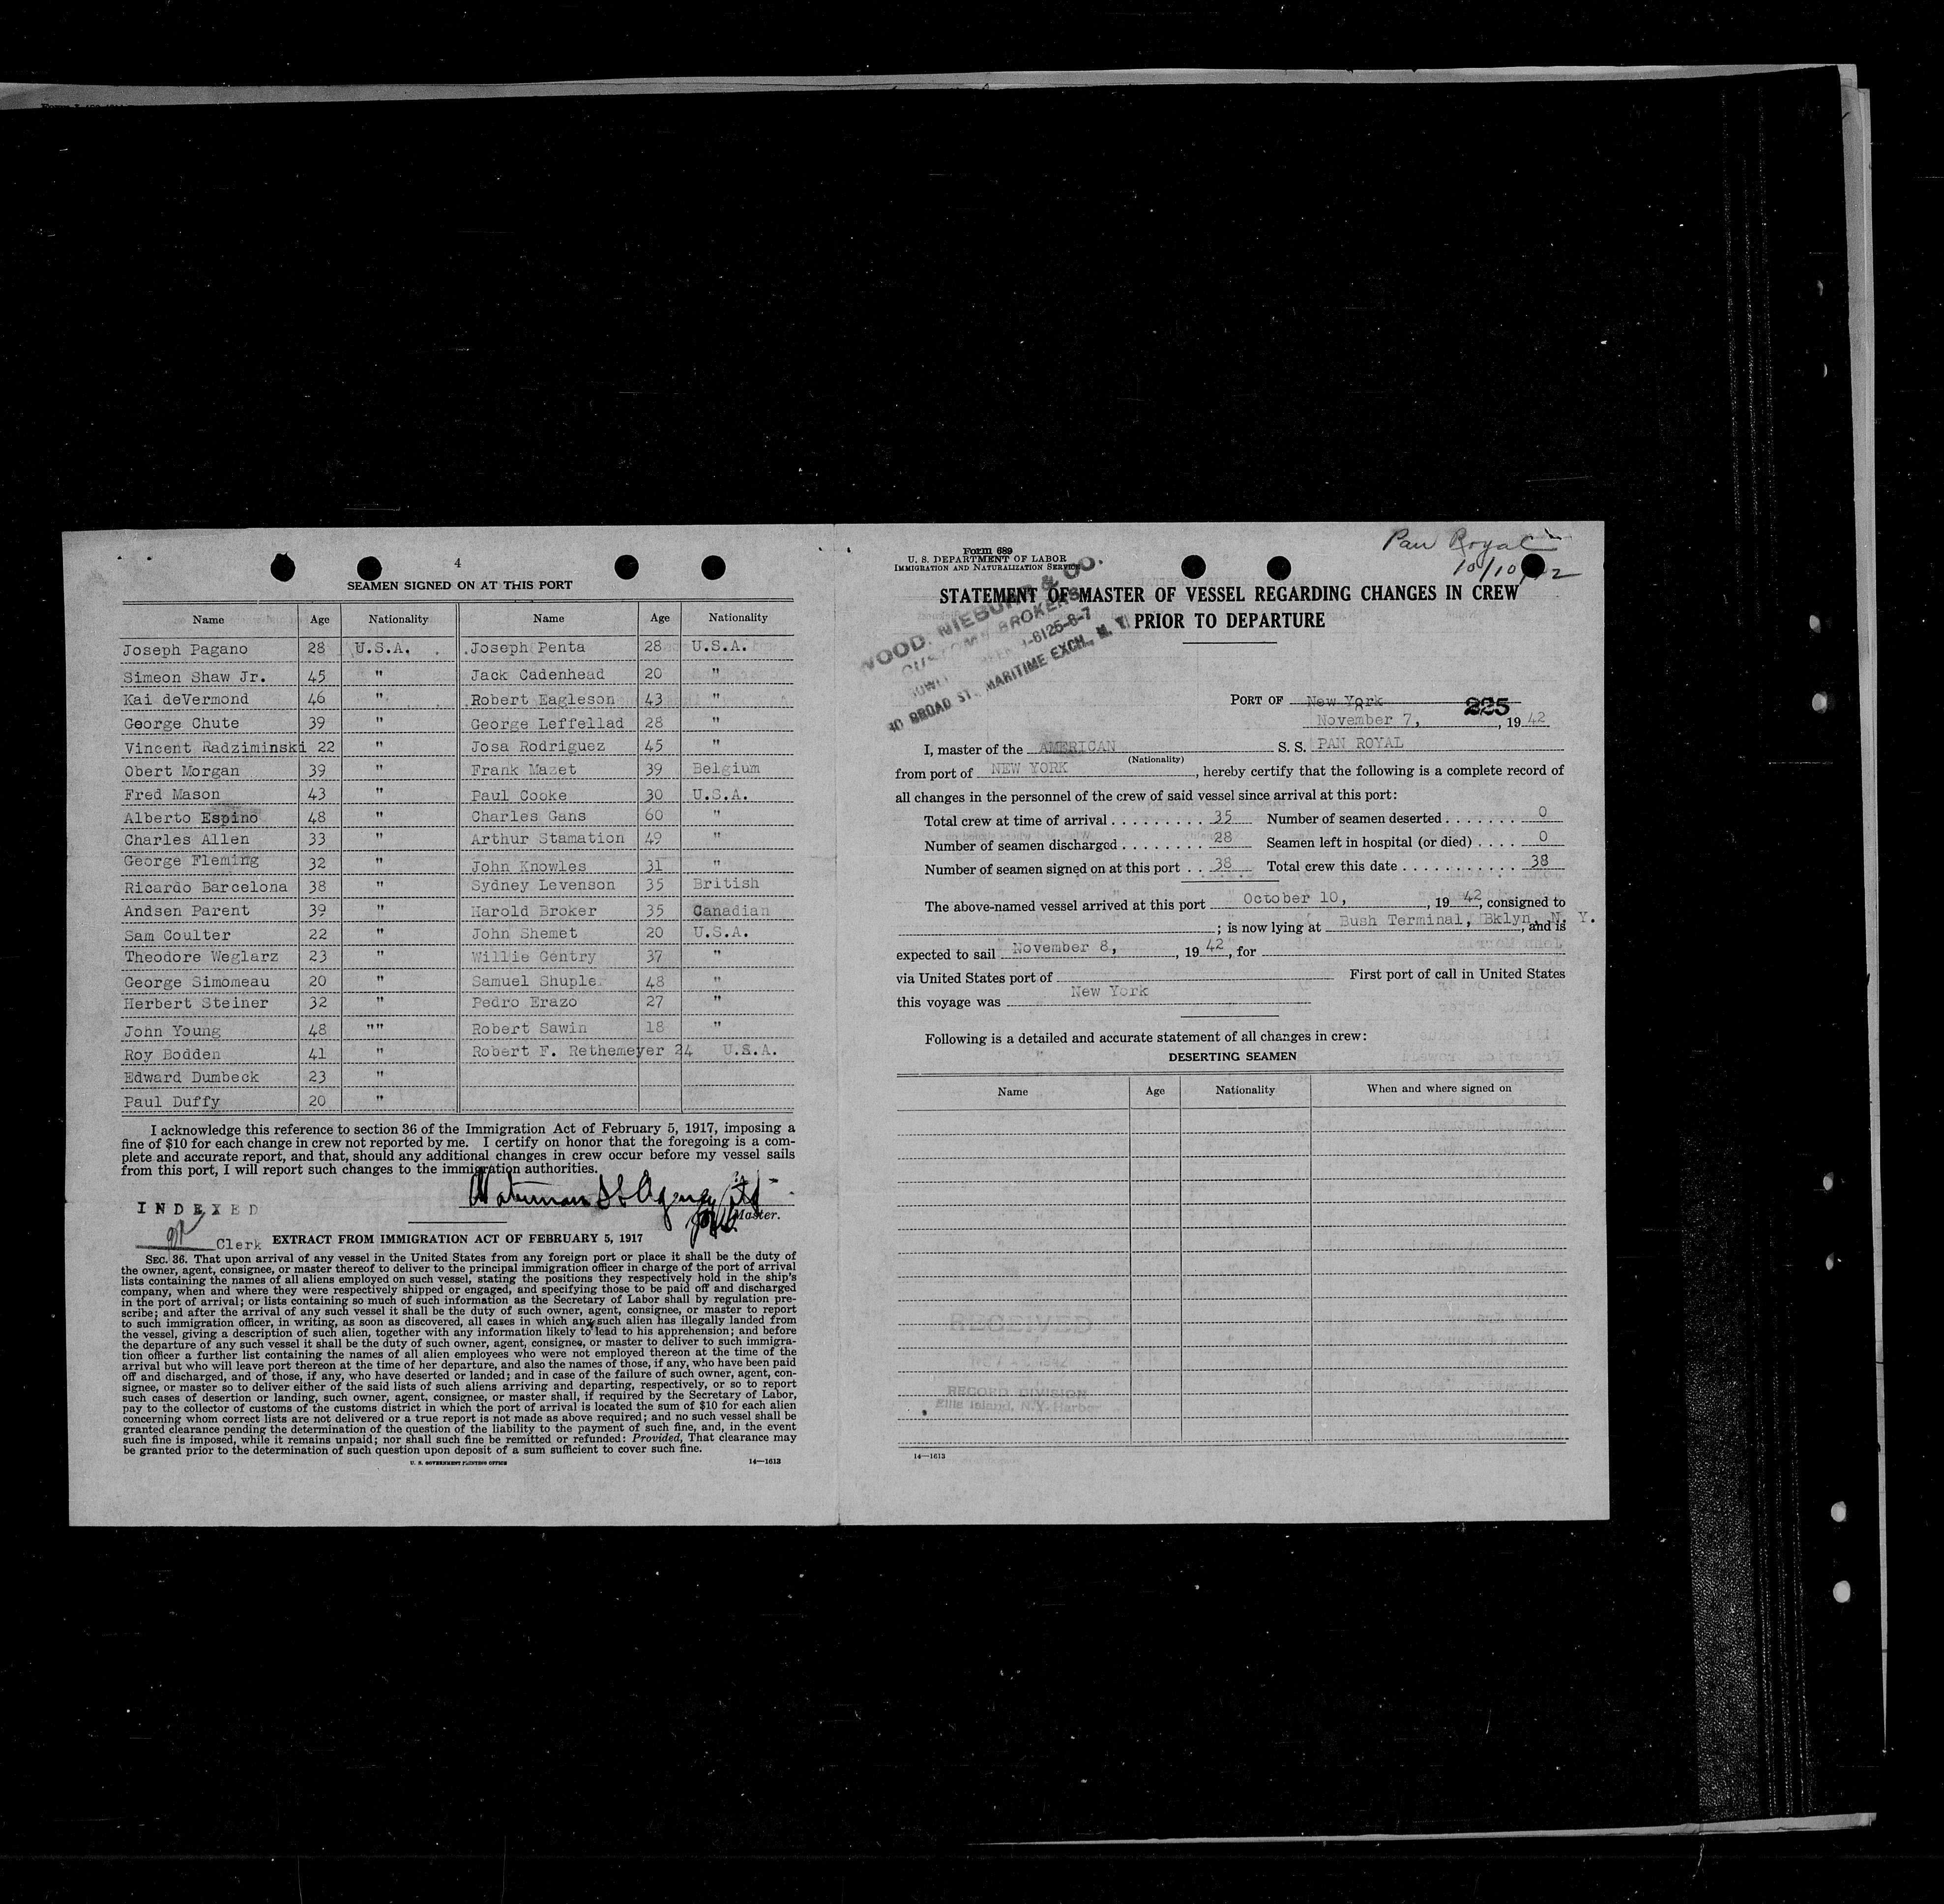 4
SEAMEN SIGNED ON AT THIS PORT
Name Age Nationality Name Age Nationality
Joseph Pagano 28 U.S.A. Joseph Penta 28 U.S.A.
Simeon Shaw Jr. 45 " Jack Cadenhead 20 "
Kai deVermond 46 " Robert Eagleson 43 "
George Chute 39 " George Leffellad 28 "
Vincent Radziminski 22 " Josa Rodriguez 45 "
Obert Morgan 39 " Frank Mazet 39 Belgium
Fred Mason 43 " Paul Cooke 30 U.S.A.
Alberto Espino 48 " Charles Gans 60 "
Charles Allen 33 " Arthur Stamation 49 "
George Fleming 32 " John Knowles 31 "
Ricardo Barcelona 38 " Sydney Levenson 35 British
Andsen Parent 39 " Harold Broker 35 Canadian
Sam Coulter 22 " John Shemet 20 U.S.A.
Theodore Weglarz 23 " Willie Gentry 37 "
George Simomeau 20 " Samuel Shuple 48 "
Herbert Steiner 32 " Pedro Erazo 27 "
John Young 48 "" Robert Sawin 18 "
Roy Bodden 41 " Robert F. Rethemeyer 24 U.S.A.
Edward Dumbeck 23 "
Paul Duffy 20 "
I acknowledge this reference to section 36 of the Immigration Act of February 5, 1917, imposing a
fine of $10 for each change in crew not reported by me. I certify on honor that the foregoing is a com-
plete and accurate report, and that, should any additional changes in crew occur before my vessel sails
from this port, I will report such changes to the immigration authorities.
Waterman SS Agency Ltd
INDEXED
Master.
Clerk
EXTRACT FROM IMMIGRATION ACT OF FEBRUARY 5, 1917
SEC. 36. That upon arrival of any vessel in the United States from any foreign port or place it shall be the duty of
the owner, agent, consignee, or master thereof to deliver to the principal immigration officer in charge of the port of arrival
lists containing the names of all aliens employed on such vessel, stating the positions they respectively hold in the ship's
company, when and where they were respectively shipped or engaged, and specifying those to be paid off and discharged
in the port of arrival; or lists containing so much of such information as the Secretary of Labor shall by regulation pre-
scribe; and after the arrival of any such vessel it shall be the duty of such owner, agent, consignee, or master to report
to such immigration officer, in writing, as soon as discovered, all cases in which any such alien has illegally landed from
the vessel, giving a description of such alien, together with any information likely to lead to his apprehension; and before
the departure of any such vessel it shall be the duty of such owner, agent, consignee, or master to deliver to such immigra-
tion officer a further list containing the names of all alien employees who were not employed thereon at the time of the
arrival but who will leave port thereon at the time of her departure, and also the names of those, if any, who have been paid
off and discharged, and of those, if any, who have deserted or landed; and in case of the failure of such owner, agent, con-
signee, or master so to deliver either of the said lists of such aliens arriving and departing, respectively, or so to report
such cases of desertion or landing, such owner, agent, consignee, or master shall, if required by the Secretary of Labor,
pay to the collector of customs of the customs district in which the port of arrival is located the sum of $10 for each alien
concerning whom correct lists are not delivered or a true report is not made as above required; and no such vessel shall be
granted clearance pending the determination of the question of the liability to the payment of such fine, and, in the event
such fine is imposed, while it remains unpaid; nor shall such fine be remitted or refunded: Provided, That clearance may
be granted prior to the determination of such question upon deposit of a sum sufficient to cover such fine.
U. S. GOVERNMENT PRINTING OFFICE 14—1613
Pan Royal
10/10/42
Form 689
U. S. DEPARTMENT OF LABOR
IMMIGRATION AND NATURALIZATION SERVICE
WOOD, NIEBUHR & CO.
CUSTOMS BROKERS
6125-6-7
BROAD ST. MARITIME EXCH., N. Y.
STATEMENT OF MASTER OF VESSEL REGARDING CHANGES IN CREW
PRIOR TO DEPARTURE
PORT OF New York 225
November 7, , 1942
I, master of the AMERICAN S. S. PAN ROYAL
(Nationality)
from port of NEW YORK , hereby certify that the following is a complete record of
all changes in the personnel of the crew of said vessel since arrival at this port:
Total crew at time of arrival . . . . . . . . . 35 Number of seamen deserted . . . . . . . 0
Number of seamen discharged . . . . . . . . 28 Seamen left in hospital (or died) . . . . 0
Number of seamen signed on at this port . . 38 Total crew this date . . . . . . . . . . . 38
The above-named vessel arrived at this port October 10, , 1942, consigned to
; is now lying at Bush Terminal, Bklyn, N. Y. , and is
expected to sail November 8, , 1942, for
via United States port of First port of call in United States
this voyage was New York
Following is a detailed and accurate statement of all changes in crew:
DESERTING SEAMEN
Name Age Nationality When and where signed on
RECEIVED
RECORD DIVISION
Ellis Island, N.Y. Harbor
14—1613